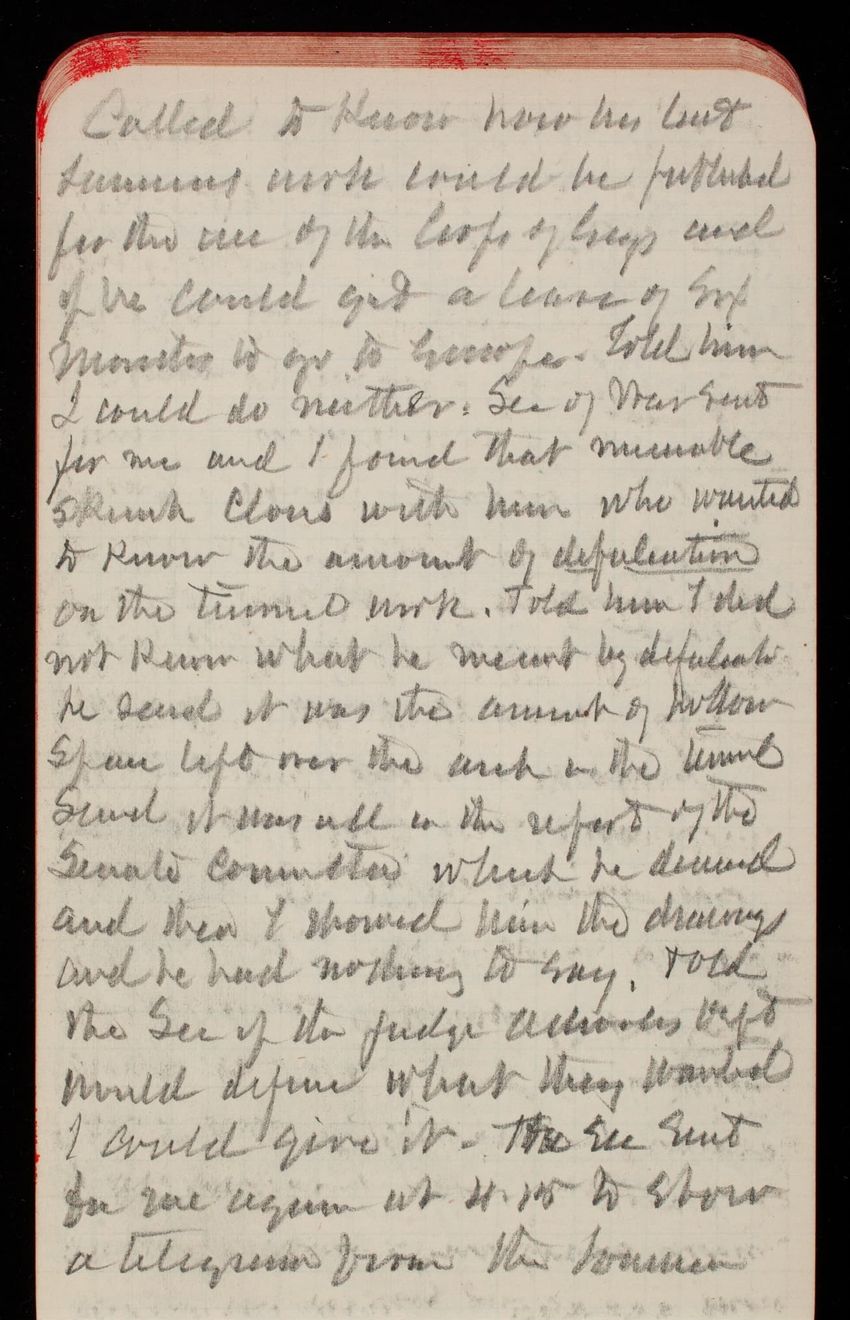 Called to Know how his last
Summers work could be published
for the use of the Corps of Engrs and
if he could get a leave of Six
Months to go to Europe. Told him
I could do neither. Sec of War Sent
for me and I found that miserable
Skunk Clous with him who wanted
to Know the amount of defalcation
on the Tunnel work. Told him I did
not Know what he meant by defalcatn
he said it was the amount of hollow
Space left over the arch in the Tunnel
Said it was all in the report of the
Senate Committee which he denied
and then I showed him the drawings
and he had nothing to say. Told
the Sec if the Judge Advocates Dept
would define what they wanted
I could give it. The Sec Sent
for me again at 4.15 to show
a telegram from the